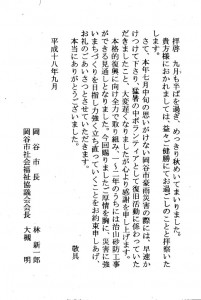 拝啓 九月も半ばを過ぎ、めっきり秋めいてまいりました。
貴方様におかれましては、益々ご健勝にてお過ごしのことと拝察いた
します。
さて、本年七月中旬の思いがけない岡谷市豪雨災害の際には、早速か
けつけて下さり、猛暑の中ボランティアとして復旧活動に係わっていた
だきましたこと、大変遅くなりましたが心より感謝を申し上げます。
本格的復興に向け全力で取り組み、一〜二年のうちには治山砂防工事
ができる見通しとなりました。今回賜りましたご厚情を胸に、災害に強
いまちづくりを目指し力強く立ち直っていくことをお約束申しあげ、
お礼のごあいさつとさせていただきます。
本当にありがとうございました。
敬具
平成十八年九月
岡谷市長 林 新一郎
岡谷市社会福祉協議会会長 大槻 明